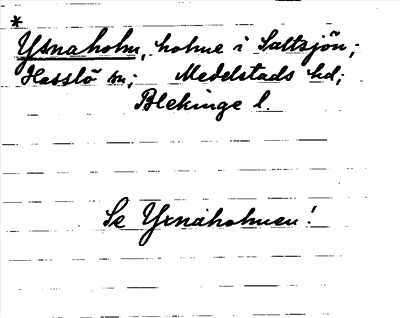 *
Ysnaholm, holme i Saltsjön;
Hasslö sn; Medelstads hd;
Blekinge l.
Se Yxnaholmen!